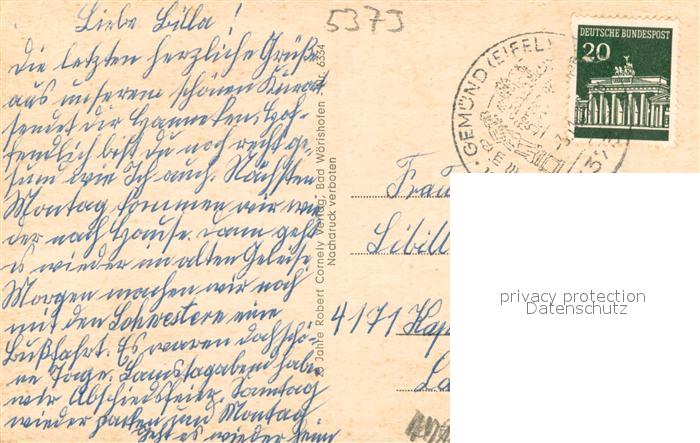 Liebe Billa!
Die letzten herzliche Grüße
aus unserem schönen Kurort
sendet dir Hanneken. Hof-
fendlich bist du noch recht ge-
sund wie Ich auch. Nächsten
Montag kommen wir wie
der nach Hause. dann geht
es wieder im alten Geleise
Morgen machen wir noch
mit den Schwestern eine
Bußfahrt. Es waren doch schö-
ne Tage. Samstagabend haben
wir Abschiedsfeier. Sonntag
wieder packen und Montag
geht es wieder heim
5373
25 Jahre Robert Cornely Verlag, Bad Wörishofen Nr. 6334
Nachdruck verboten
GEMÜND (EIFEL)
DEUTSCHE BUNDESPOST
20
Frau
Sibill
4171 Kap
La
privacy protection
Datenschutz